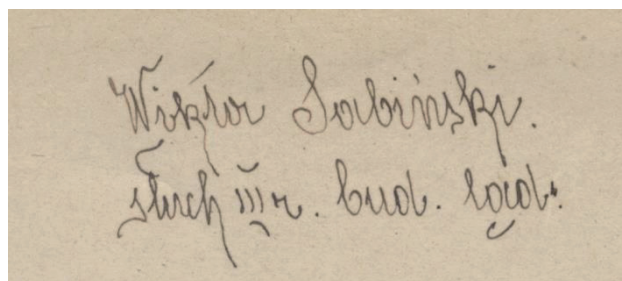 Wiktor Sabiński.
słuch III r. bud. ląd.